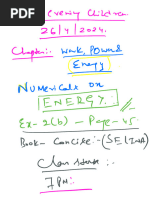 Every Children
26/4/2024.
Chapter:- Work, Power &
Energy
NUmericals on
ENERGY.
Ex-2(b) - Page-45
Book- Concise:- (SELINA)
Class starts:-
7 PM:-